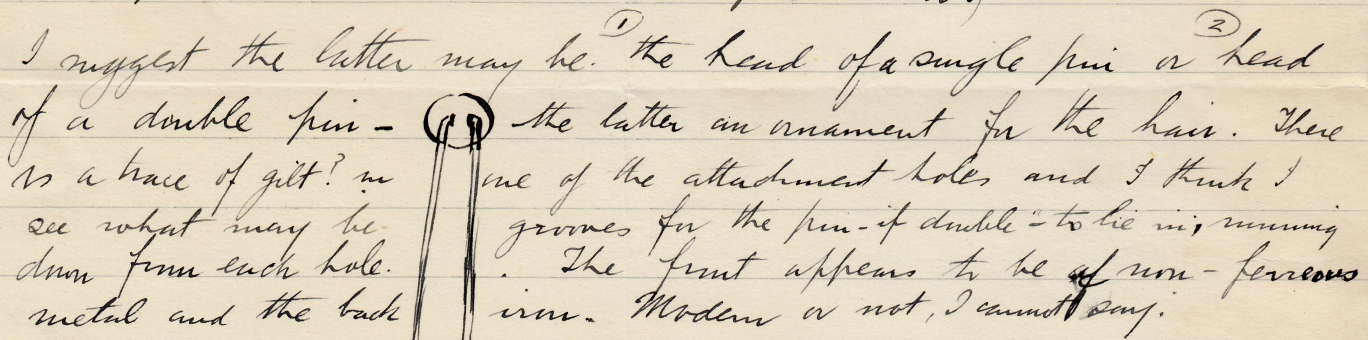 I suggest the latter may be. ① the head of a single pin or ② head
of a double pin - the latter an ornament for the hair. There
is a trace of gilt? in one of the attachment holes and I think I
see what may be grooves for the pin - if double - to lie in, running
down from each hole. The front appears to be of non-ferreous
metal and the back iron. Modern or not, I cannot say.